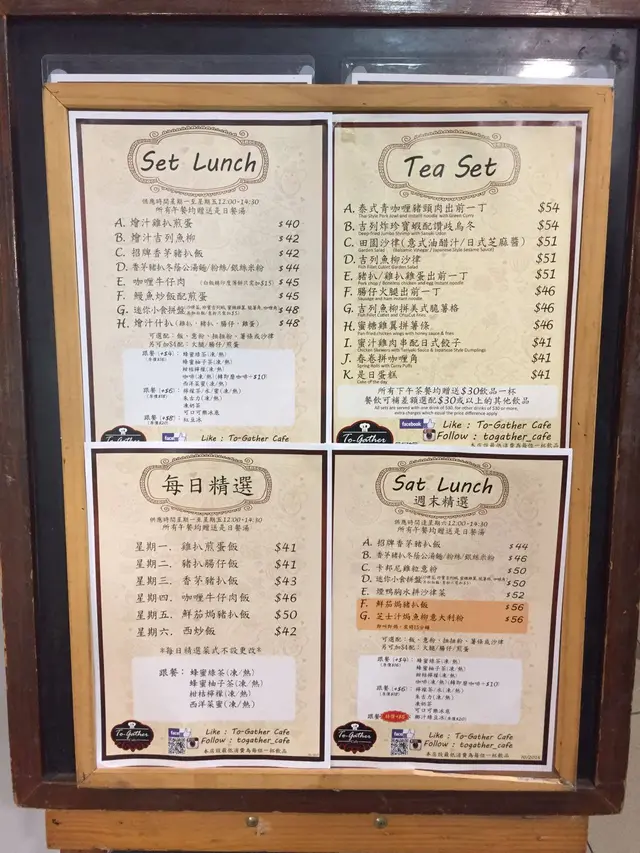 Set Lunch
供應時間星期一至星期五12:00-14:30
所有午餐均贈送是日餐湯
A. 燴汁雞扒煎蛋 $40
B. 燴汁吉列魚柳 $42
C. 招牌香茅豬扒飯 $42
D. 香茅豬扒冬蔭公湯麵/粉絲/銀絲米粉 $44
E. 咖喱牛仔肉 $45
F. 鰻魚炒飯配煎蛋 $45
G. 迷你小食拼盤 $48
H. 燴汁什扒(雞扒,豬扒,腸仔,雞蛋) $48
可選配:飯,意粉,扭扭粉,薯條或沙律
另可加$4配:火腿/腸仔/煎蛋
跟餐(+$4): 蜂蜜綠茶(凍/熱)
蜂蜜柚子茶(凍/熱)
柑桔檸檬(凍/熱)
咖啡(凍/熱)
西洋菜蜜(凍/熱)
(+$6): 檸檬茶/水/蜜(凍/熱)
朱古力(凍/熱)
凍奶茶
可口可樂冰底
(+$8): 紅豆冰
To-Gather
Like : To-Gather Cafe
Follow : togather_cafe
Tea Set
A. 泰式青咖喱豬頸肉出前一丁 $54
Thai Style Pork Jowl and Instant noodle with Green Curry
B. 吉列炸珍寶蝦配讚歧烏冬 $54
Deep-fried Jumbo Shrimp with Sanuki Udon
C. 田園沙律(意式油醋汁/日式芝麻醬) $51
D. 吉列魚柳沙律 $51
Fish Fillet Cutlet Garden Salad
E. 豬扒/雞扒雞蛋出前一丁 $51
Pork chop / Boneless chicken and egg instant noodle
F. 腸仔火腿出前一丁 $46
Sausage and ham instant noodle
G. 吉列魚柳拼美式脆薯格 $46
Fish Fillet Cutlet and CrissCut Fries
H. 蜜糖雞翼拼薯條 $46
Pan fried chicken wings with honey sauce & fries
I. 蜜汁雞肉串配日式餃子 $41
Chicken Skewers with Teriyaki Sauce & Japanese Style Dumplings
J. 春卷拼咖喱角 $41
Spring Rolls with Curry Puffs
K. 是日蛋糕 $41
Cake of the day
所有下午茶餐均贈送$30飲品一杯
餐飲可補差額選配$30或以上的其他飲品
All sets are served with one drink of $30, for other drinks of $30 or more,
extra charges which equal the price difference apply
To-Gather
facebook
Like : To-Gather Cafe
Follow : togather_cafe
本店設最低消費為每位一杯飲品
每日精選
供應時間星期一至星期五12:00-14:30
所有午餐均贈送是日餐湯
星期一. 雞扒煎蛋飯 $41
星期二. 豬扒腸仔飯 $41
星期三. 香茅豬扒飯 $43
星期四. 咖喱牛仔肉飯 $46
星期五. 鮮茄焗豬扒飯 $50
星期六. 西炒飯 $42
※每日精選菜式不設更改※
跟餐: 蜂蜜綠茶(凍/熱)
蜂蜜柚子茶(凍/熱)
柑桔檸檬(凍/熱)
西洋菜蜜(凍/熱)
To-Gather
Like : To-Gather Cafe
Follow : togather_cafe
本店設最低消費為每位一杯飲品
Sat Lunch
週末精選
供應時間逢星期六12:00-14:30
所有午餐均贈送是日餐湯
A. 招牌香茅豬扒飯 $44
B. 香茅豬扒冬蔭公湯麵/粉絲/銀絲米粉 $46
C. 卡邦尼雞粒意粉 $50
D. 迷你小食拼盤 $50
E. 煙鴨胸水耕沙律菜 $52
F. 鮮茄焗豬扒飯 $56
G. 芝士汁焗魚柳意大利粉 $56
可選配:飯,意粉,扭扭粉,薯條或沙律
另可加$4配:火腿/腸仔/煎蛋
跟餐(+$4): 蜂蜜綠茶(凍/熱)
蜂蜜柚子茶(凍/熱)
柑桔檸檬(凍/熱)
咖啡(凍/熱)(轉即磨咖啡+$10)
跟餐(+$6): 檸檬茶/水(凍/熱)
朱古力(凍/熱)
凍奶茶
可口可樂冰底
跟餐
To-Gather
Like : To-Gather Cafe
Follow : togather_cafe
本店設最低消費為每位一杯飲品